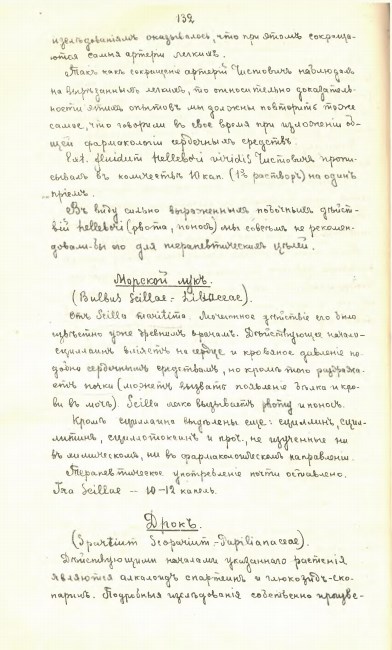 132
изслѣдованіямъ оказывалось, что при этомъ сокраща-
ются самыя артеріи легкихъ.
Такъ какъ сокращеніе артерій Чистовичъ наблюдалъ
на вырѣзанныхъ легкихъ, то относительно доказатель-
ности этихъ опытовъ мы должны повторить тоже
самое, что говорили въ свое время при изложеніи об-
щей фармакологіи сердечныхъ средствъ.
Ext. fluidum hellebori viridis Чистовичъ пропи-
сывалъ въ количествѣ 10 кап. (1% растворъ) на одинъ
пріемъ.
Въ виду сильно выраженныхъ побочныхъ дѣйст-
вій hellebori (рвота, поносъ) мы совсѣмъ не рекомен-
довали-бы его для терапевтическихъ цѣлей.
Морской лукъ.
(Bulbus Scillae - Liliaceae).
отъ Scilla maritima. Мочегонное дѣйствіе его было
извѣстно уже древнимъ врачамъ. Дѣйствующее начало-
сциллаинъ вліяетъ на сердце и кровяное давленіе по-
добно сердечнымъ средствамъ, но кромѣ того раздража-
етъ почки (можетъ вызвать появленіе бѣлка и кро-
ви въ мочѣ). Scilla легко вызываетъ рвоту и поносъ.
Кромѣ сциллаина выдѣлены еще: сциллинъ, сцил-
литинъ, сциллотоксинъ и проч., не изученные ни
въ химическомъ, ни въ фармакологическомъ направленіи.
Терапевтическое употребленіе почти оставлено.
Tra Scillae — 10-12 капель.
Дрокъ.
(Spartium Scoparium - Papilianaceae).
Дѣйствующими началами указаннаго растенія
являются алкалоидъ спартеинъ и глюкозидъ-ско-
паринъ. Подробныя изслѣдованія собственно произве-